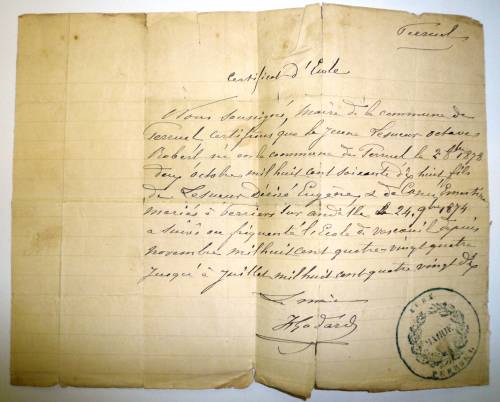 Perruel
Certificat d'Ecole
Nous soussigné, Maire de la commune de
Perruel certifions que le jeune Lesueur octave
Robert né en la commune de Perruel le 2 8bre 1878
deux octobre mil huit cent soixante dix huit fils
de Lesueur désiré Eugène & de
mariés à perriers sur andelle le 24 9bre 1874
a suivi ou fréquenté l'Ecole de vascoeuil depuis
novembre mil huit cent quatre-vingt quatre
jusqu'à juillet mil huit cent quatre vingt dix
Le maire
Godard
EURE
MAIRIE
PERRUEL